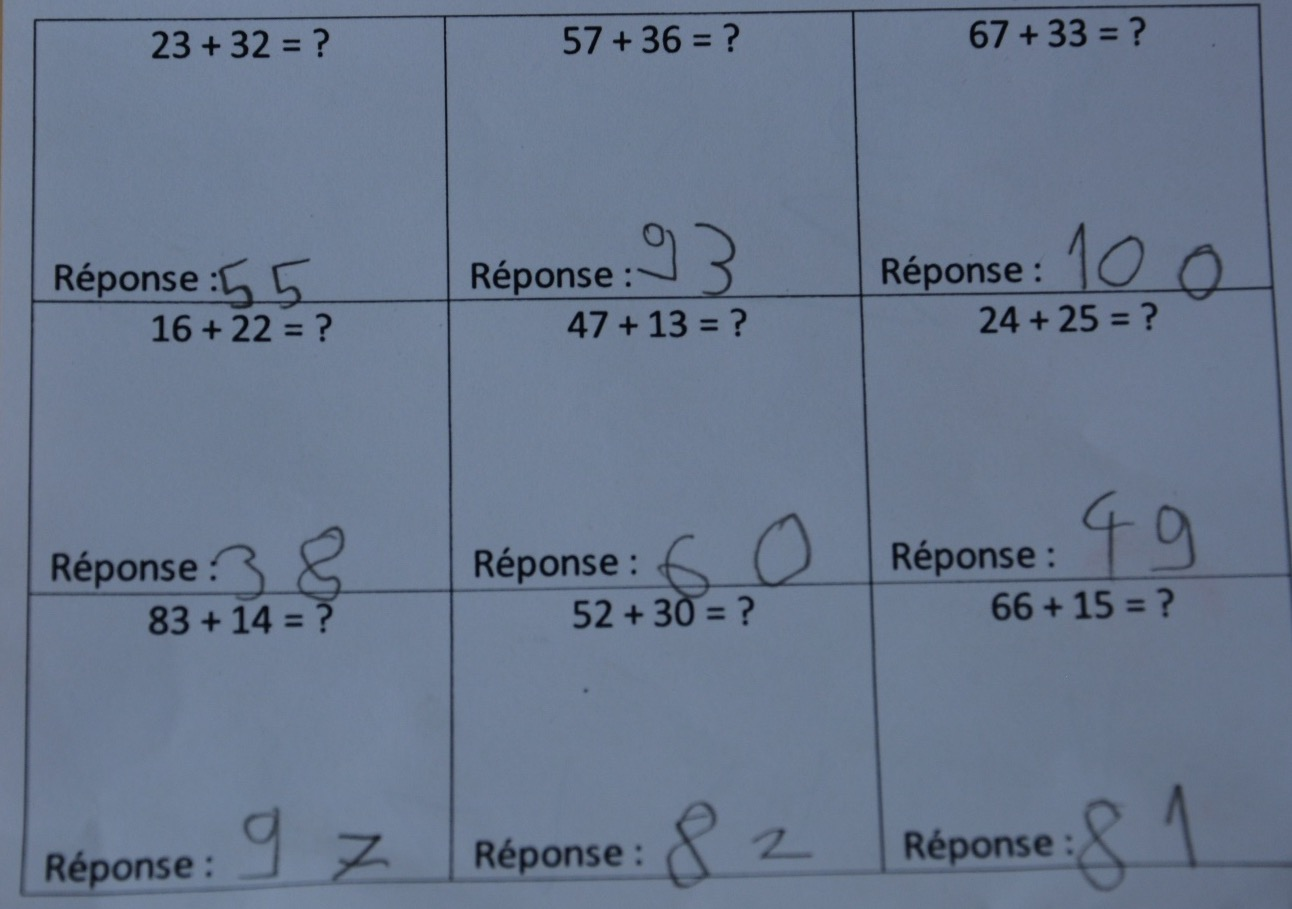 23 + 32 = ?
Réponse : 55
57 + 36 = ?
Réponse : 93
67 + 33 = ?
Réponse : 100
16 + 22 = ?
Réponse : 38
47 + 13 = ?
Réponse : 60
24 + 25 = ?
Réponse : 49
83 + 14 = ?
Réponse : 97
52 + 30 = ?
Réponse : 82
66 + 15 = ?
Réponse : 81